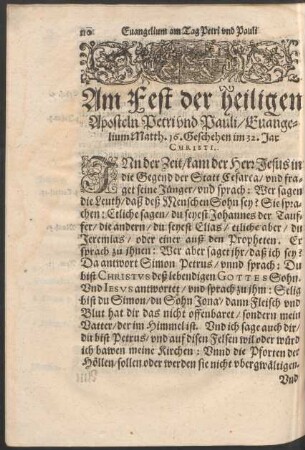 110 Euangelium am Tag Petri vnd Pauli
Am Fest der heiligen
Aposteln Petri vnd Pauli / Euange-
lium Matth. 16. Geschehen im 32. Jar
CHRISTI.
JN der Zeit / kam der Herr Jesus in
die Gegend der Statt Cesarea / vnd fra-
get seine Jünger / vnd sprach: Wer sagen
die Leuth / daß deß Menschen Sohn sey? Sie spra-
chen: Etliche sagen / du seyest Johannes der Tauf-
fer / die andern / du seyest Elias / etliche aber / du
Jeremias / oder einer auß den Propheten. Er
sprach zu jhnen: Wer aber saget jhr / daß ich sey?
Da antwort Simon Petrus / vnnd sprach: Du
bist CHRISTVS deß lebendigen GOTTES Sohn.
Vnd IESVS antwortet / vnd sprach zu jhm: Selig
bist du Simon / du Sohn Jona / dann Fleisch vnd
Blut hat dir das nicht offenbaret / sondern mein
Vatter / der im Himmel ist. Vnd ich sage auch dir /
du bist Petrus / vnd auf disen Felsen wil oder würd
ich bawen meine Kirchen: Vnnd die Pforten der
Höllen / sollen oder werden sie nicht vbergwältigen.
Vnd